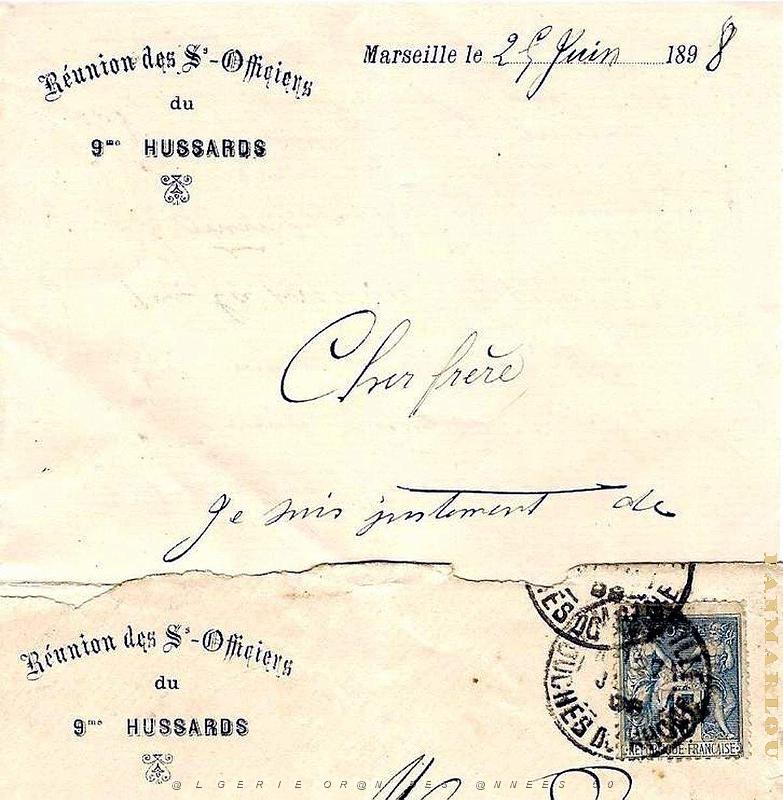 Réunion des Ss-Officiers
du
9me HUSSARDS
Marseille le 25 Juin 1898
Cher frère
Je suis justement de
Réunion des Ss-Officiers
du
9me HUSSARDS
BOUCHES DU RHONE
REPUBLIQUE FRANCAISE
@LGERIE OR@N LES @NNEES 50
PAPMARLOU